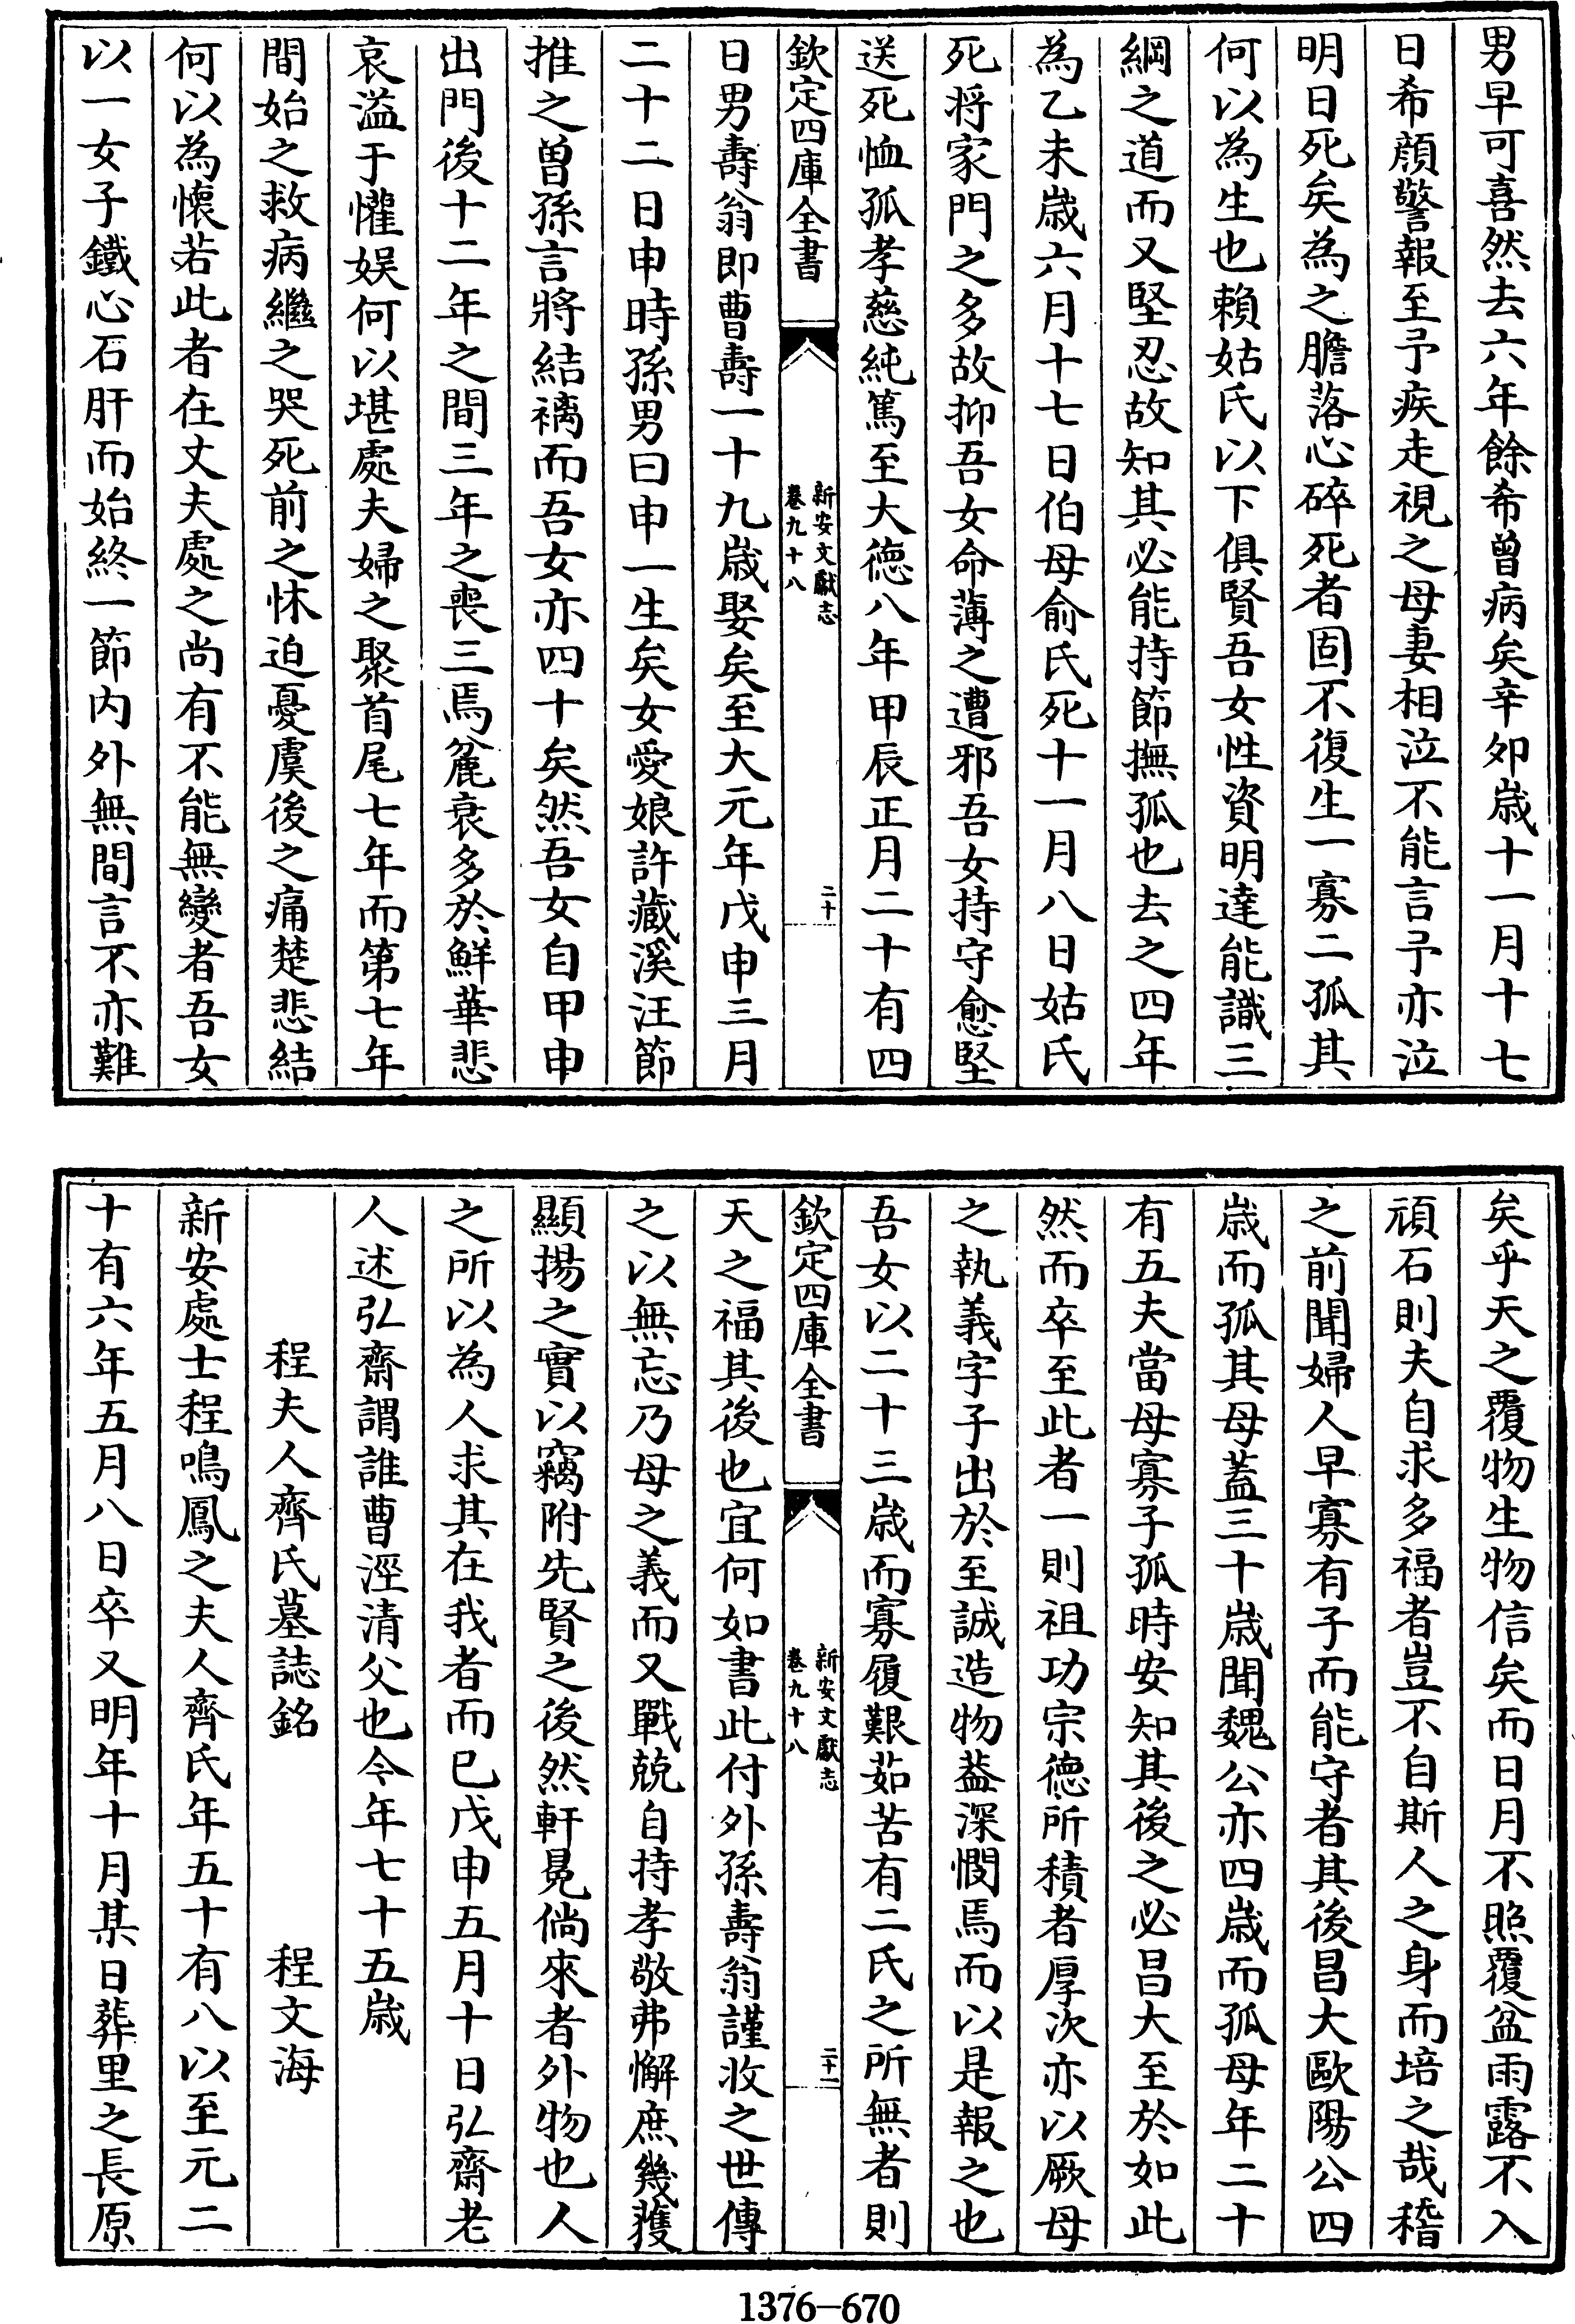 男早可喜然去六年餘希曽病矣辛夘歳十一月十七
日希顔警報至予疾走視之母妻相泣不能言予亦泣
明日死矣為之膽落心碎死者固不復生一寡二孤其
何以為生也賴姑氏以下俱賢吾女性資明達能識三
綱之道而又堅忍故知其必能持節撫孤也去之四年
為乙未歳六月十七日伯母俞氏死十一月八日姑氏
死将家門之多故抑吾女命薄之遭邪吾女持守愈堅
送死恤孤孝慈純篤至大德八年甲辰正月二十有四
欽定四庫全書
新安文獻志
卷九十八
二十
日男壽翁即曹壽一十九歳娶矣至大元年戊申三月
二十二日申時孫男曰申一生矣女愛娘許藏溪汪節
推之曽孫言將結褵而吾女亦四十矣然吾女自甲申
出門後十二年之間三年之喪三焉麄衰多於鮮華悲
哀溢于懽娱何以堪處夫婦之聚首尾七年而第七年
間始之救病繼之哭死前之怵迫憂虞後之痛楚悲結
何以為懷若此者在丈夫處之尚有不能無變者吾女
以一女子鐵心石肝而始終一節内外無間言不亦難
矣乎天之覆物生物信矣而日月不照覆盆雨露不入
頑石則夫自求多福者豈不自斯人之身而培之哉稽
之前聞婦人早寡有子而能守者其後昌大歐陽公四
歳而孤其母蓋三十歳聞魏公亦四歳而孤母年二十
有五夫當母寡子孤時安知其後之必昌大至於如此
然而卒至此者一則祖功宗德所積者厚次亦以厥母
之執義字子出於至誠造物葢深憫焉而以是報之也
吾女以二十三歳而寡履艱茹苦有二氏之所無者則
欽定四庫全書
新安文獻志
卷九十八
二十一
天之福其後也宜何如書此付外孫壽翁謹收之世傳
之以無忘乃母之義而又戰兢自持孝敬弗懈庶幾獲
顯揚之實以竊附先賢之後然軒冕倘來者外物也人
之所以為人求其在我者而已戊申五月十日弘齋老
人述弘齋謂誰曹涇清父也今年七十五歳
程夫人齊氏墓誌銘　　　　程文海
新安處士程鳴鳳之夫人齊氏年五十有八以至元二
十有六年五月八日卒又明年十月某日葬里之長原
1376-670